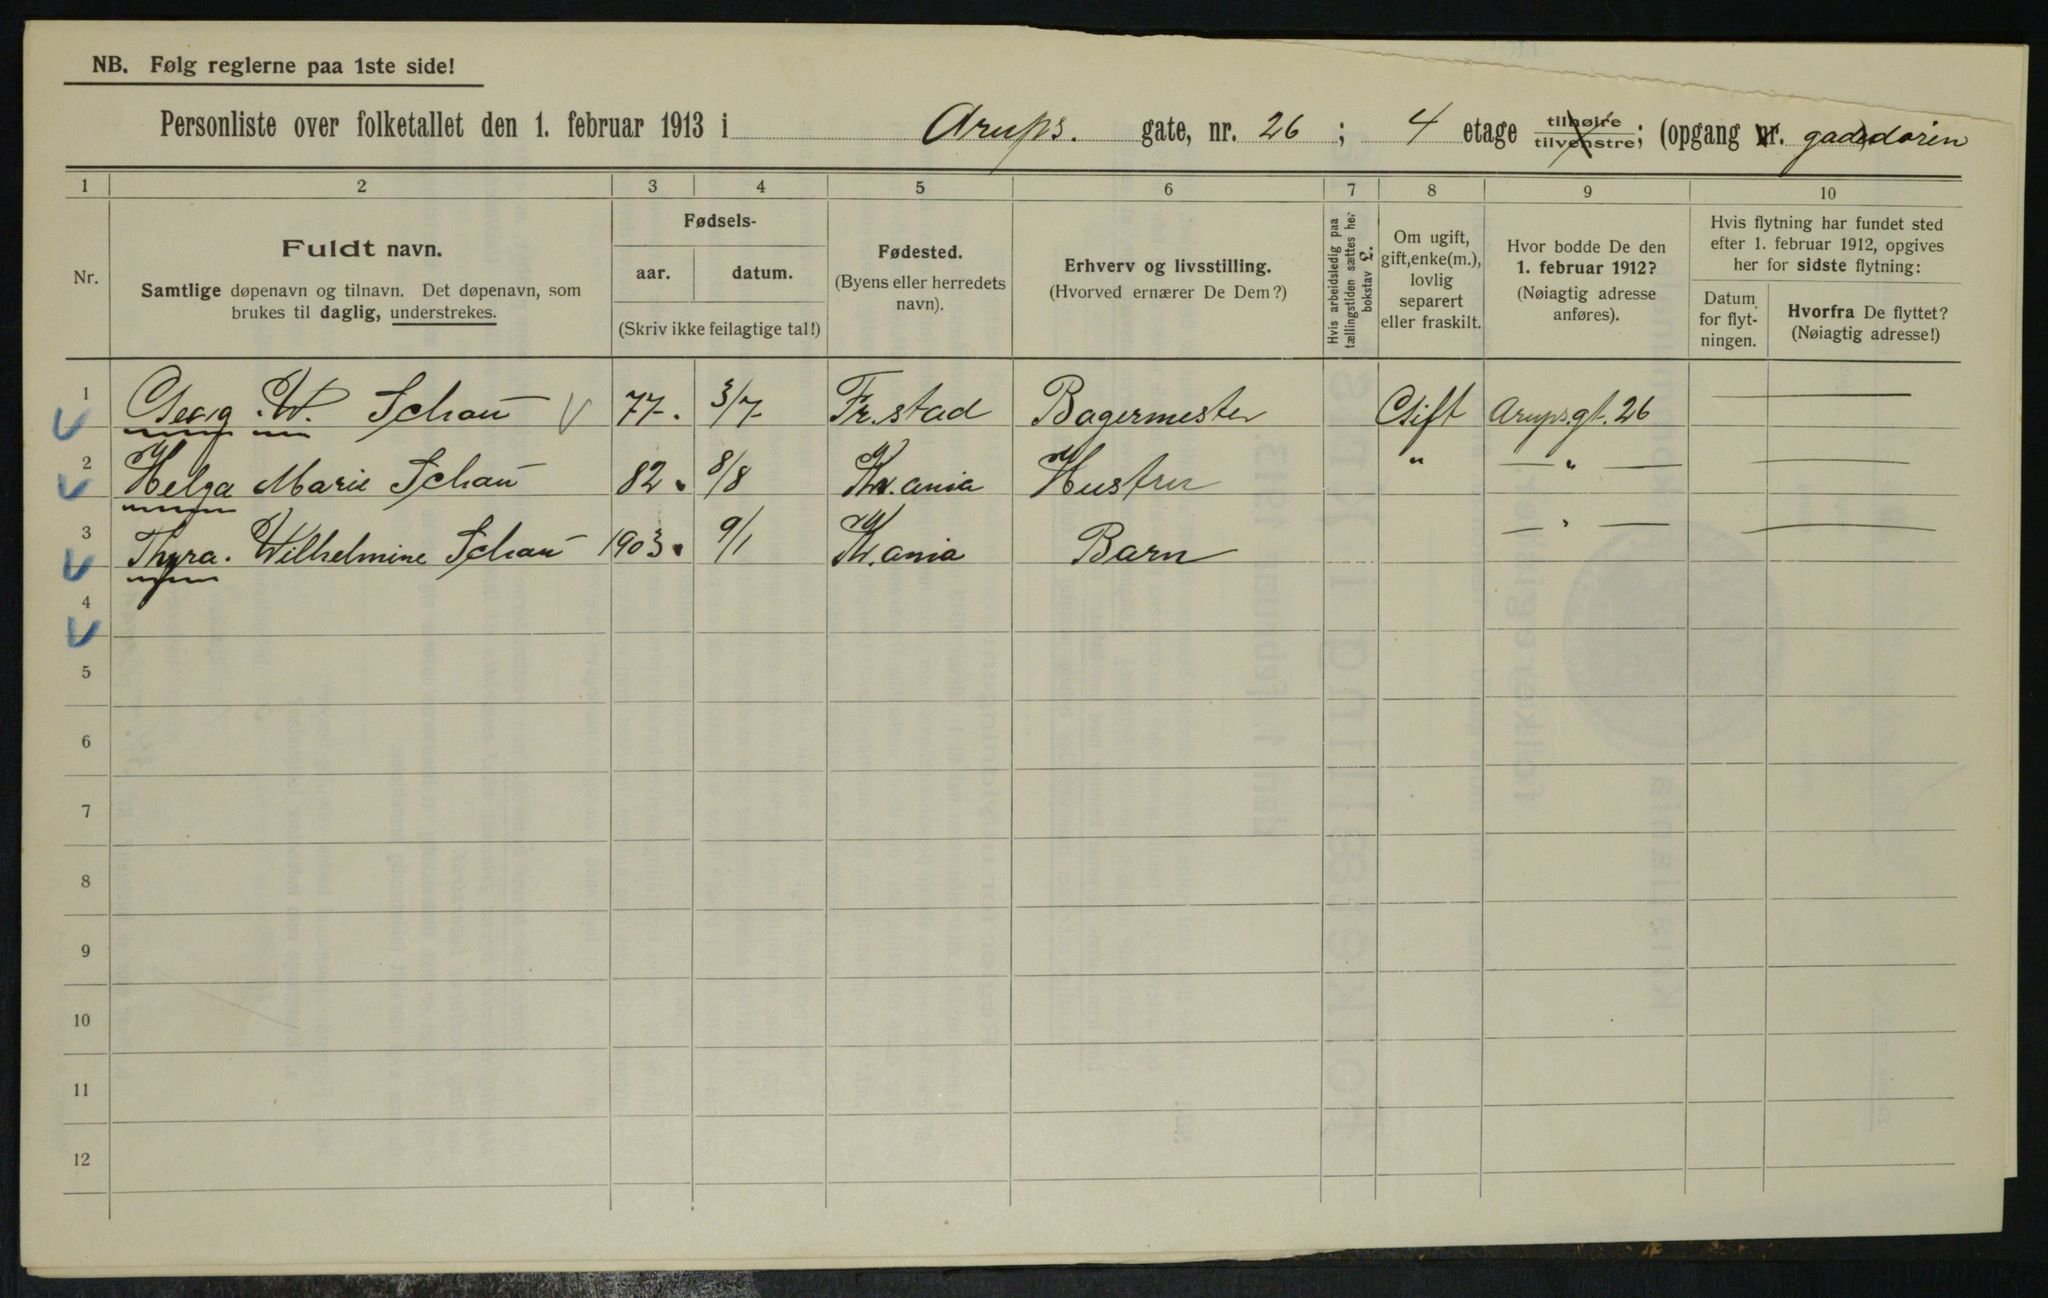 NB. Følg reglerne paa 1ste side!
Personliste over folketallet den 1. februar 1913 i Arups. gate, nr. 26 ; 4 etage tilhøire tilvenstre; (opgang nr. gadedøren
1 2 3 4 5 6 7 8 9 10
Nr.
Fuldt navn.
Samtlige døpenavn og tilnavn. Det døpenavn, som
brukes til daglig, understrekes.
Fødsels-
aar. datum.
(Skriv ikke feilagtige tal!)
Fødested.
(Byens eller herredets
navn).
Erhverv og livsstilling.
(Hvorved ernærer De Dem?)
Hvis arbeidsledig paa
tællingstiden sættes her
bokstav L.
Om ugift,
gift, enke(m.),
lovlig
separert
eller fraskilt.
Hvor bodde De den
1. februar 1912?
(Nøiagtig adresse
anføres).
Hvis flytning har fundet sted
efter 1. februar 1912, opgives
her for sidste flytning:
Datum
for flyt-
ningen.
Hvorfra De flyttet?
(Nøiagtig adresse!)
1 Georg W. Schau 77. 3/7 Fr.stad Bagermester Gift Arups.gt. 26 —
2 Helga Marie Schau 82. 8/8 Kr.ania Hustru " — " — —
3 Thyra. Wilhelmine Schau 1903. 9/1 Kr.ania Barn — " — —
4
5
6
7
8
9
10
11
12